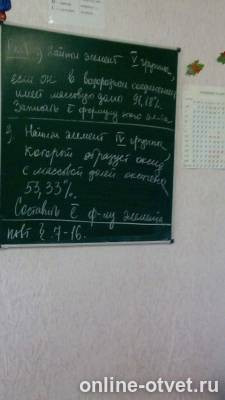 1) Найти элемент V группы,
если он в водородном соединении
имеет массовую долю 91,18%.
Записать Ē формулу
2) Найти элемент IV группы,
который образует оксид
с массовой долей
53,33%.
Составить Ē ф-лу элемента
повт. § 7-16.
online-otvet.ru